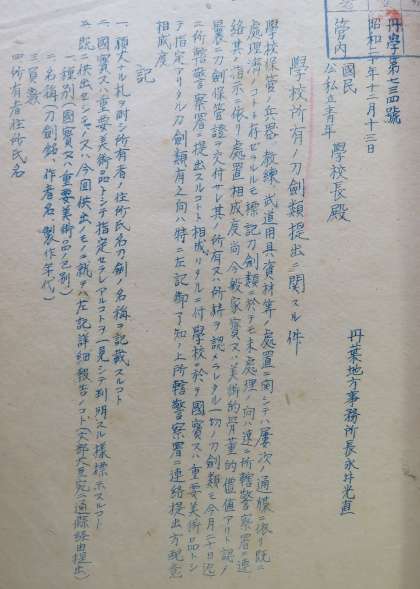 丹學第一三四號
昭和二十年十二月十三日
丹葉地方事務所長永井光直
管內
國民
公私立青年
學校長殿
學校所有ノ刀劍類提出ニ関スル件
學校保管ノ兵器、教練、武道用具資材等ノ處置ニ関シテハ屢次ノ通牒ニ依リ既ニ
處理濟ノコトト存ゼラルモ標記刀劍類ニ於テモ未處理ノ向ハ速ニ所轄警察署ニ連
絡其ノ指示ニ依リ處置相成度尚今般家寶又ハ美術的骨董的價値アリト認メ
曩ニ刀劍保管證ヲ交付サレ其ノ所有又ハ所持ヲ認メラレタル一切ノ刀劍類モ今月二十日迄
ニ所轄警察署ニ提出スルコトト相成リタルニ付學校ニ於テ國寶又ハ重要美術品トシ
テ指定アリタル刀劍類有之向ハ特ニ左記御了知ノ上所轄警察署ニ連絡提出方現意
相成度
記
一、頑丈ナル札ヲ附シ所有者ノ住所氏名刀劍ノ名稱ヲ記載スルコト
二、國寶又ハ重要美術品トシテ指定セラレアルコトヲ一見シテ判明スル樣標示スルコト
五、既ニ供出セシモノ又ハ今回供出ノモノニ就テハ左記詳細報告ノコト(文部大臣宛ニ通縣經由提出)
一、種別(國寶又ハ重要美術品ノ區別)
二、名稱(刀劍銘、作者名、製作年代)
三、員數
四、所有者住所氏名